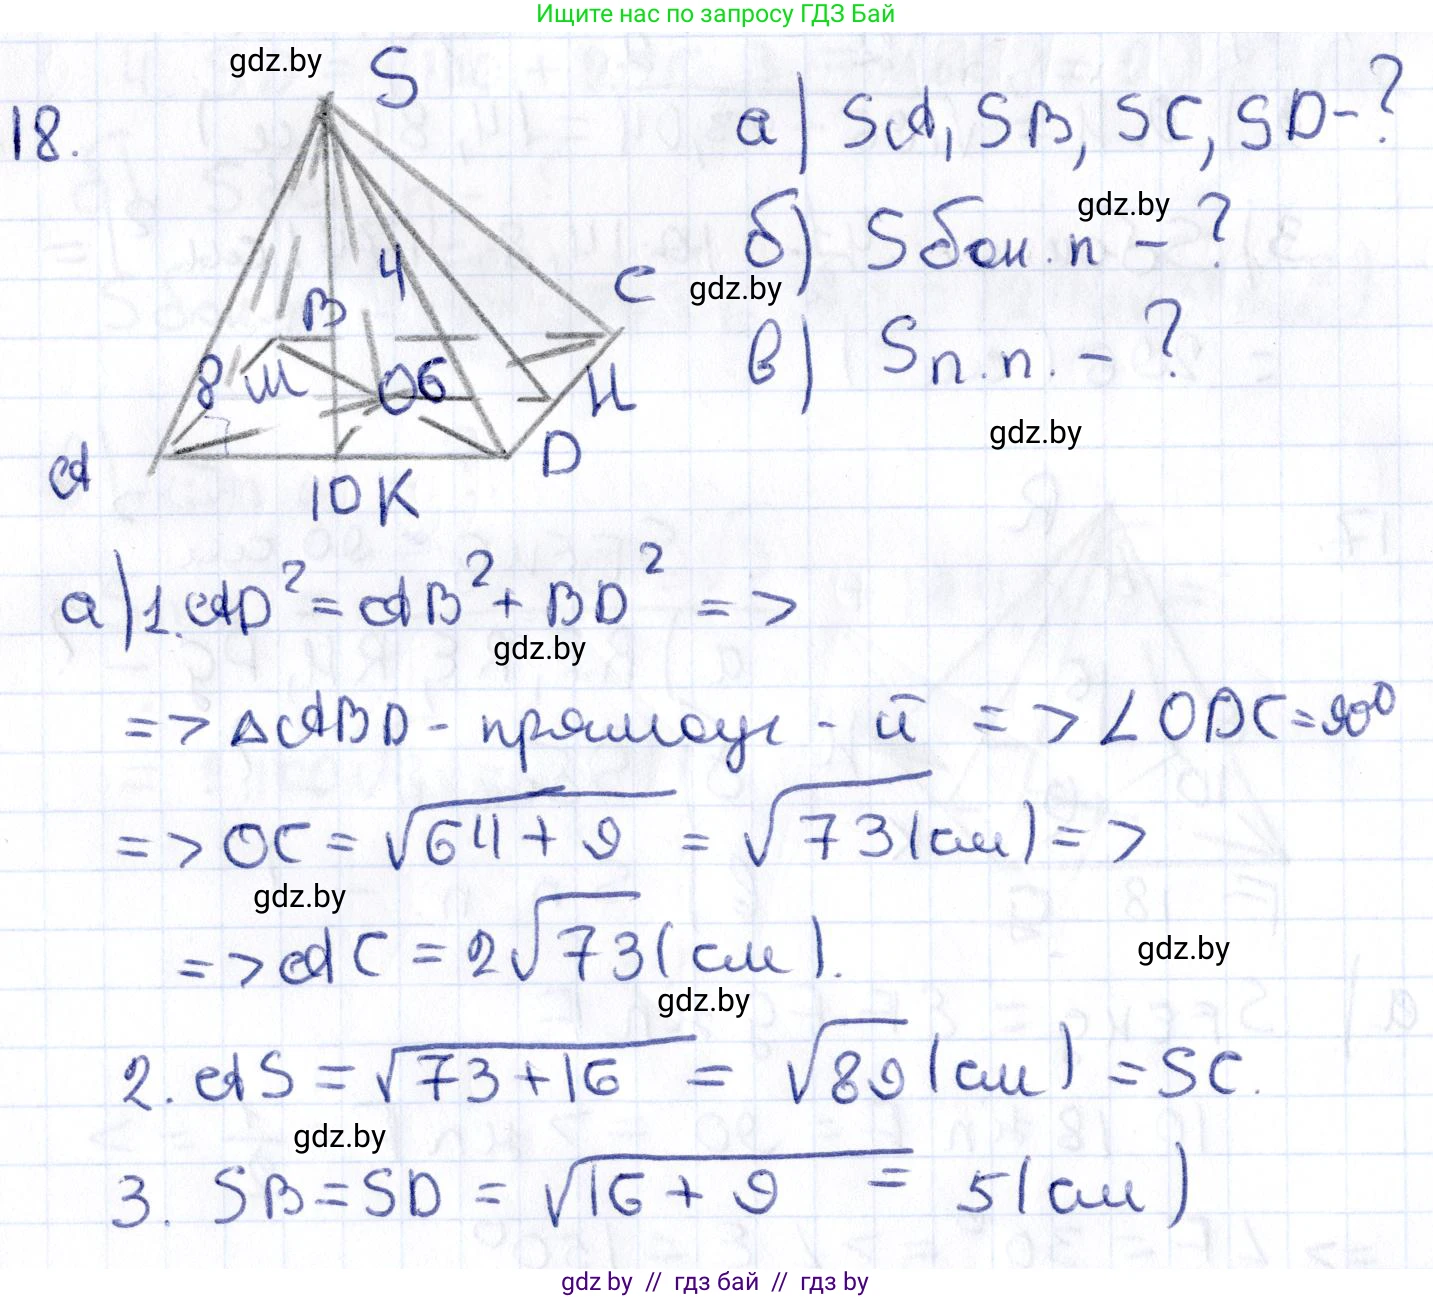 Ищите нас по запросу ГДЗ Бай
gdz.by
18.
S
4
B
C
8
M
O
6
H
A
D
10
K
а) SA, SB, SC, SD - ?
gdz.by
б) Sбок. п - ?
gdz.by
в) Sп.п. - ?
gdz.by
а) 1. AD² = AB² + BD² =>
gdz.by
=> △ABD - прямоуг - й => ∠ODC = 90⁰
=> OC = √64 + 9 = √73 (см) =>
gdz.by
=> AC = 2√73 (см).
gdz.by
gdz.by
2. AS = √73 + 16 = √89 (см) = SC.
gdz.by
3. SB = SD = √16 + 9 = 5 (см)
gdz by // гдз бай // гдз by